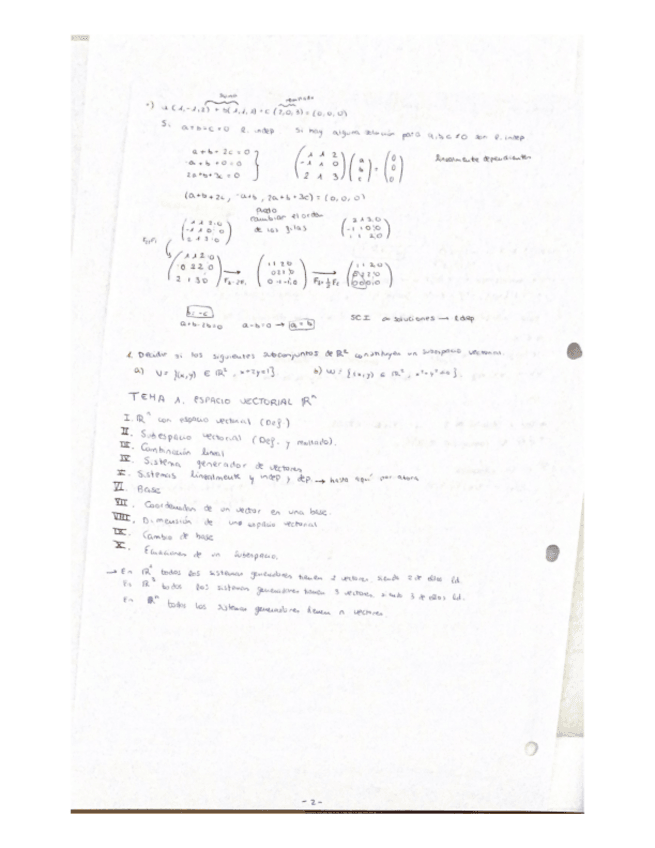 (1,-1,2) + b(1,1,1) + c(2,0,3) = (0,0,0)
Si a=b=c=0 l. indep Si hay alguna relación para a,b,c ≠ 0 son l.
a+b+2c=0
-a+b+0=0
2a+b+3c=0
( 1 1 2 ) ( a ) = ( 0 )
( -1 1 0 ) ( b ) ( 0 )
( 2 1 3 ) ( c ) ( 0 )
linealmente dependientes
(a+b+2c, -a+b, 2a+b+3c) = (0,0,0)
puedo
cambiar el orden
de las filas
( 1 1 2 0 )
( -1 1 0 0 )
( 2 1 3 0 )
( 2 1 3 0 )
( -1 1 0 0 )
( 1 1 2 0 )
( 1 1 2 0 )
( 0 2 2 0 )
( 2 1 3 0 )
( 1 1 2 0 )
( 0 2 2 0 )
( 0 -1 -1 0 )
( 1 1 2 0 )
( 0 0 0 0 )
b=-c
a+b-2b=0 a-b=0 → a=b
SCI ∞ soluciones → l.dep
Decidir si los siguientes subconjuntos de R² constituyen un subespacio vectorial
a) V = {(x,y) ∈ R², x+2y=1}
b) W = {(x,y) ∈ R²,
TEMA 1. ESPACIO VECTORIAL Rⁿ
I. Rⁿ con espacio vectorial (Def.)
II. Subespacio vectorial (Def. y
III. Combinación lineal
IV. Sistema generador de vectores
V. Sistemas linealmente y indep y dep. → hasta aquí por ahora
VI. Base
VII. Coordenadas de un vector en una base.
VIII. Dimensión de un espacio vectorial
IX. Cambio de base
X. Ecuaciones de un subespacio.
→ En R² todos los sistemas generadores tienen 2 vectores, siendo 2 de ellos l.i.
En R³ todos los sistemas generadores tienen 3 vectores, siendo 3 de ellos l.i.
En Rⁿ todos los sistemas generadores tienen n vectores.
-2-